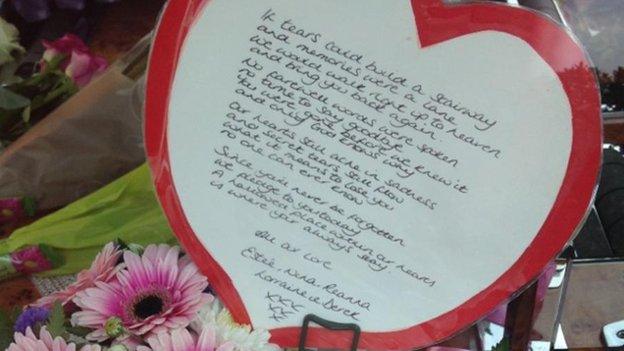 If tears could build a stairway
and memories were a lane
we would walk right up to heaven
and bring you back again.
No farewell words were spoken
no time to say goodbye
You were gone before we knew it
and only God knows why
Our hearts still ache in sadness
and secret tears still flow
what it means to lose you
no one can ever know
Since you'll never be forgotten
we pledge to you today
A hallowed place within our hearts
is where your always stay
All our love
Nina. Reanna
Lorraine & Derek
xxx
xx